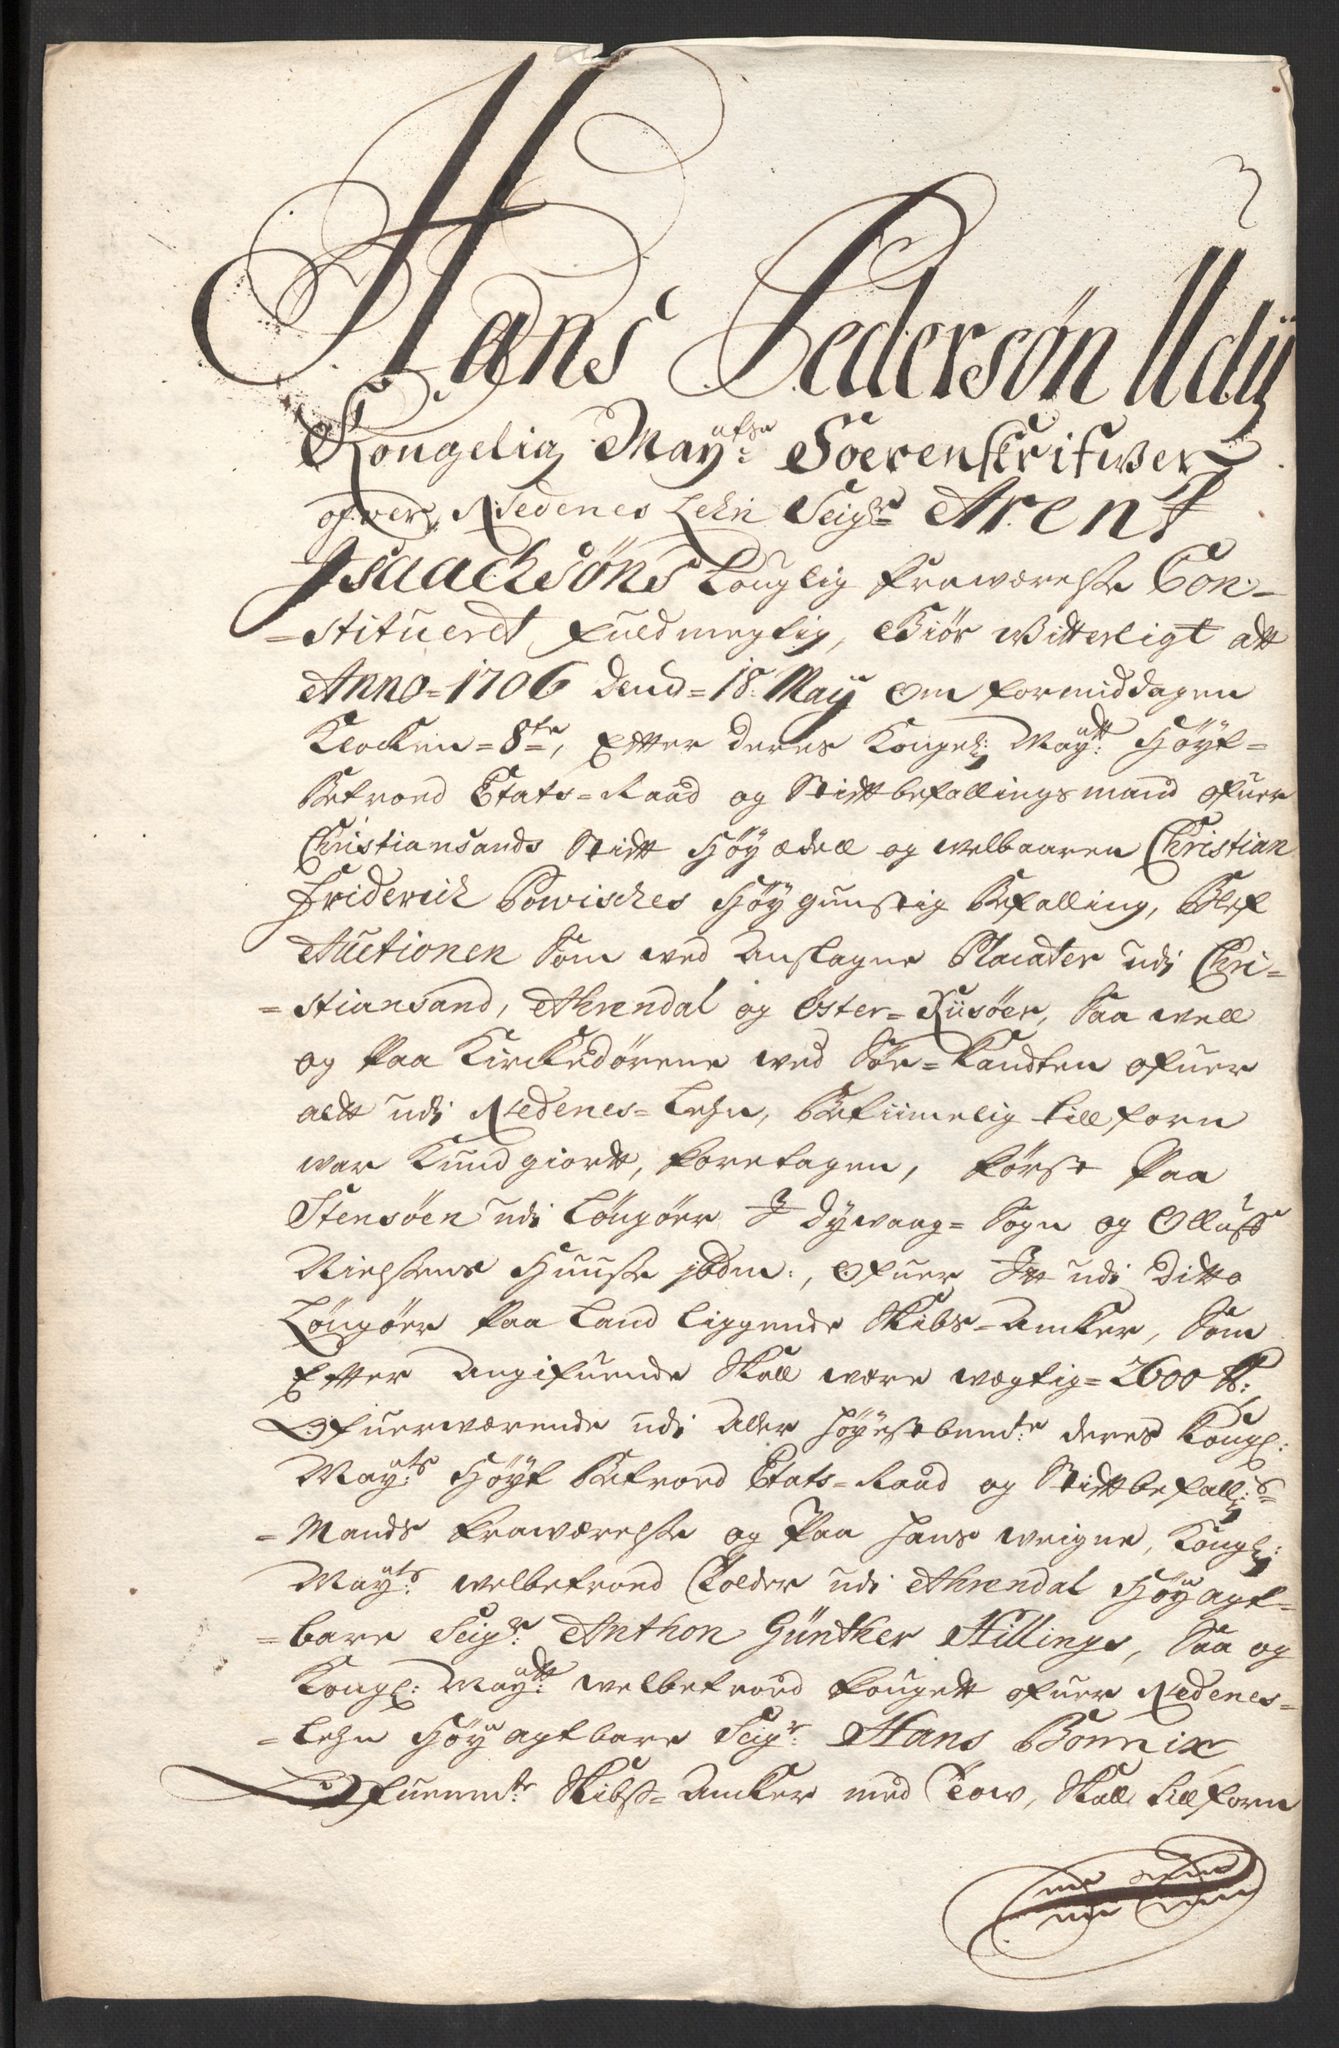 Hans Pedersøn Udÿ
Kongelig May:ts Soerenskrifwer
ofwer Nedenes Lehn Seigr: Arent
Isaachsøns Louglig frawærelse Con-
-stitueret fuldmegtig, Giør Witterligt att
Anno=1706 dend=18 Maÿ om formiddagen
Klocken=8te, Efter deres Kongel: Maytt: Høyt-
Betroed Etats=Raad og Stiftbefallingsmand ofuer
Christiansands Stift Høyædle og welbaaren Christian
Friderich Powisches Høygunstig Befalling, blef
Auctionen Som wed anslagne Placater udi Chri-
=stiansand, Ahrendal og Øster=Riisøer, Saa well
og Paa Kirckedørene wed Søe=Kandten ofuer
alt udi Nedenes=Lehn, Betiimelig tillforn
war Kundgiortt, foretagen, først Paa
Stensøen udi Løngøer I Dywaag=Sogn og Olluf
Nielsens Huuse jbdm:, Ofuer It udi Ditto
Løngøer Paa Land liggende Skibs=Ancker, Som
Efter Angifuende Skall were wegtig=2600 lb:
Ofuerwærende udi Aller høyestbemte: deres Kongl:
Mayts: Høyt Betroed Etats=Raad og Stiftbefall:s=
=Mands frawærelse og Paa hans weigne, Kongl:
Mayts: welbetroed Tolder udi Ahrendal Høyagt-
=bare Seigr: Anthon Günther Hillings, Saa og
Kongl: Maytt: welbetroed fougett ofuer Nedenes-
=Lehn Høyagtbare Seigr: Hans Bonnix
Ofuenmte: Skibs=Ancker med Tow, Skall tillforn